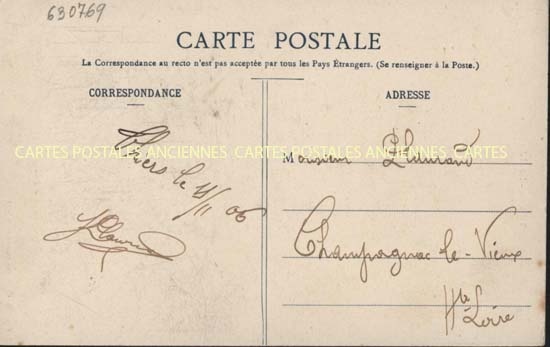 630769
CARTE POSTALE
La Correspondance au recto n'est pas acceptée par tous les Pays Étrangers. (Se renseigner à la Poste.)
CORRESPONDANCE
ADRESSE
CARTES POSTALES ANCIENNES CARTES POSTALES ANCIENNES CARTES
le
/11 06
Monsieur
Champagnac-le-Vieux
Hte
Loire